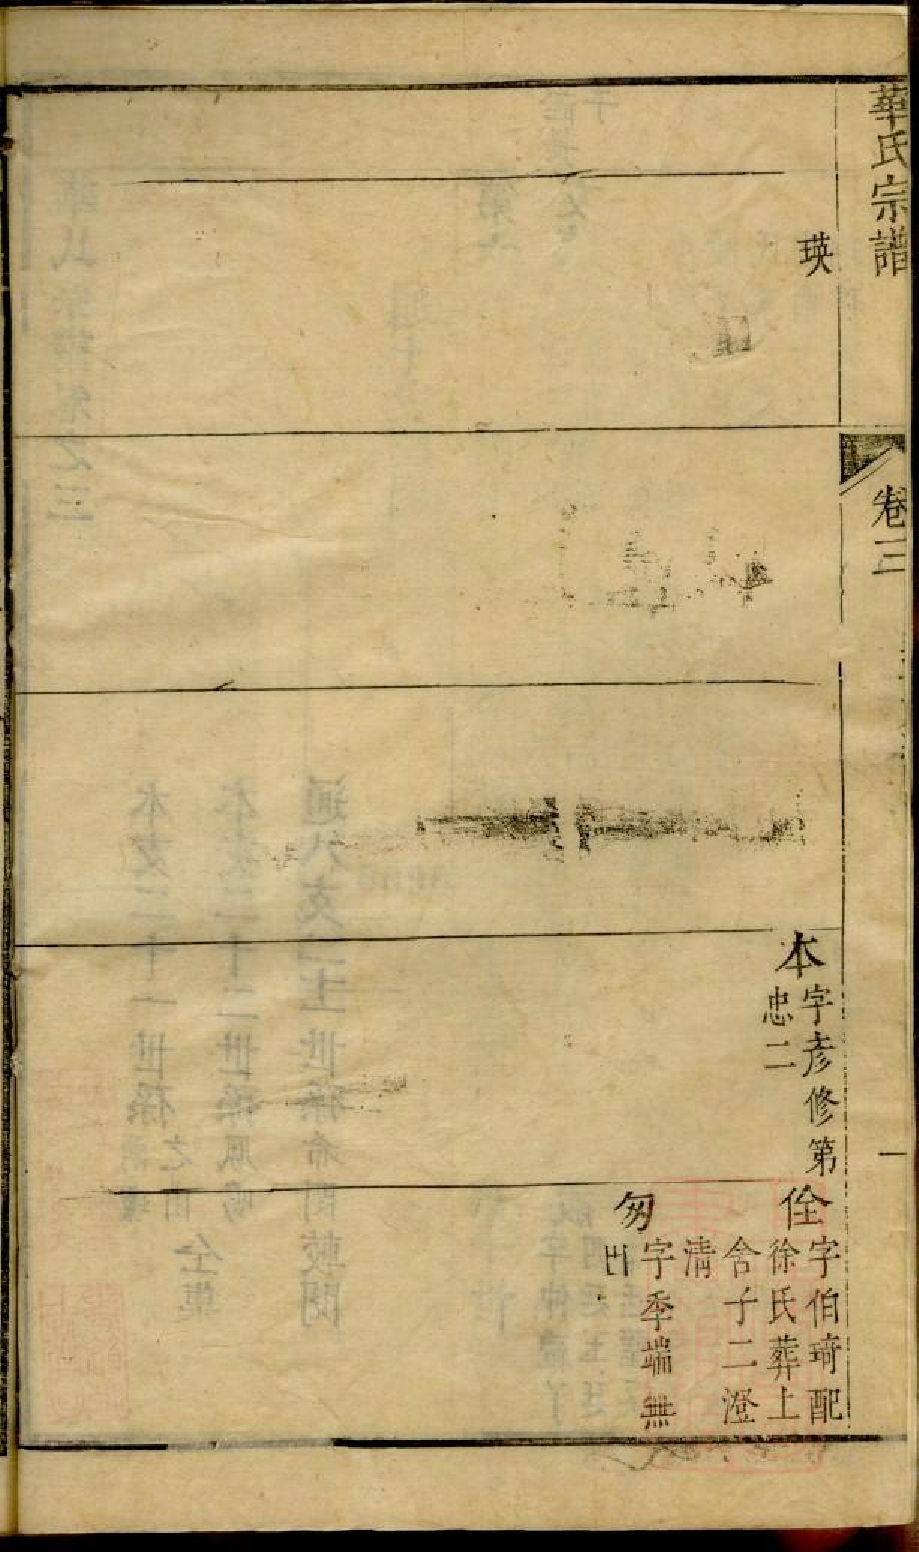 華氏宗譜
卷三
一
瑛
本
字彥修第
忠二
佺
字伯琦配
徐氏葬上
舍子二澄
清
匆
字季端無
出